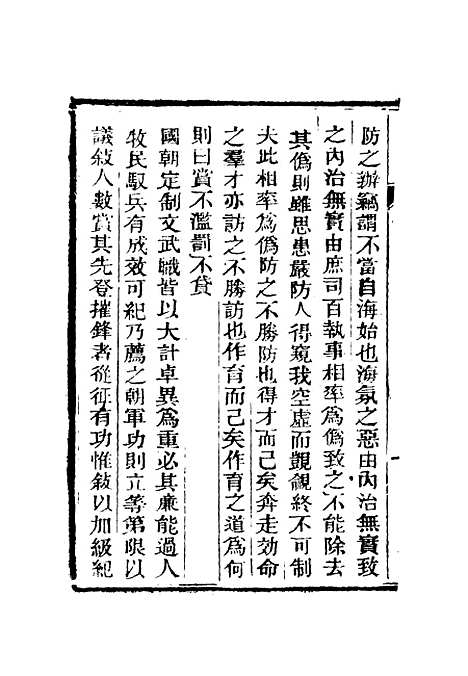 防之辦竊謂不當自海始也海氛之惡由內治無實致
之內治無實由庶司百執事相率爲僞致之不能除去
其僞則雖思患嚴防人得窺我空虛而覬覦終不可制
夫此相率爲僞防之不勝防也得才而已矣奔走効命
之羣才亦訪之不勝訪也作育而已矣作育之道爲何
則曰賞不濫罰不貸
國朝定制文武職皆以大計卓異爲重必其廉能過人
牧民馭兵有成效可紀乃薦之朝軍功則立等第限以
議敍人數賞其先登摧鋒者從征有功惟敍以加級紀